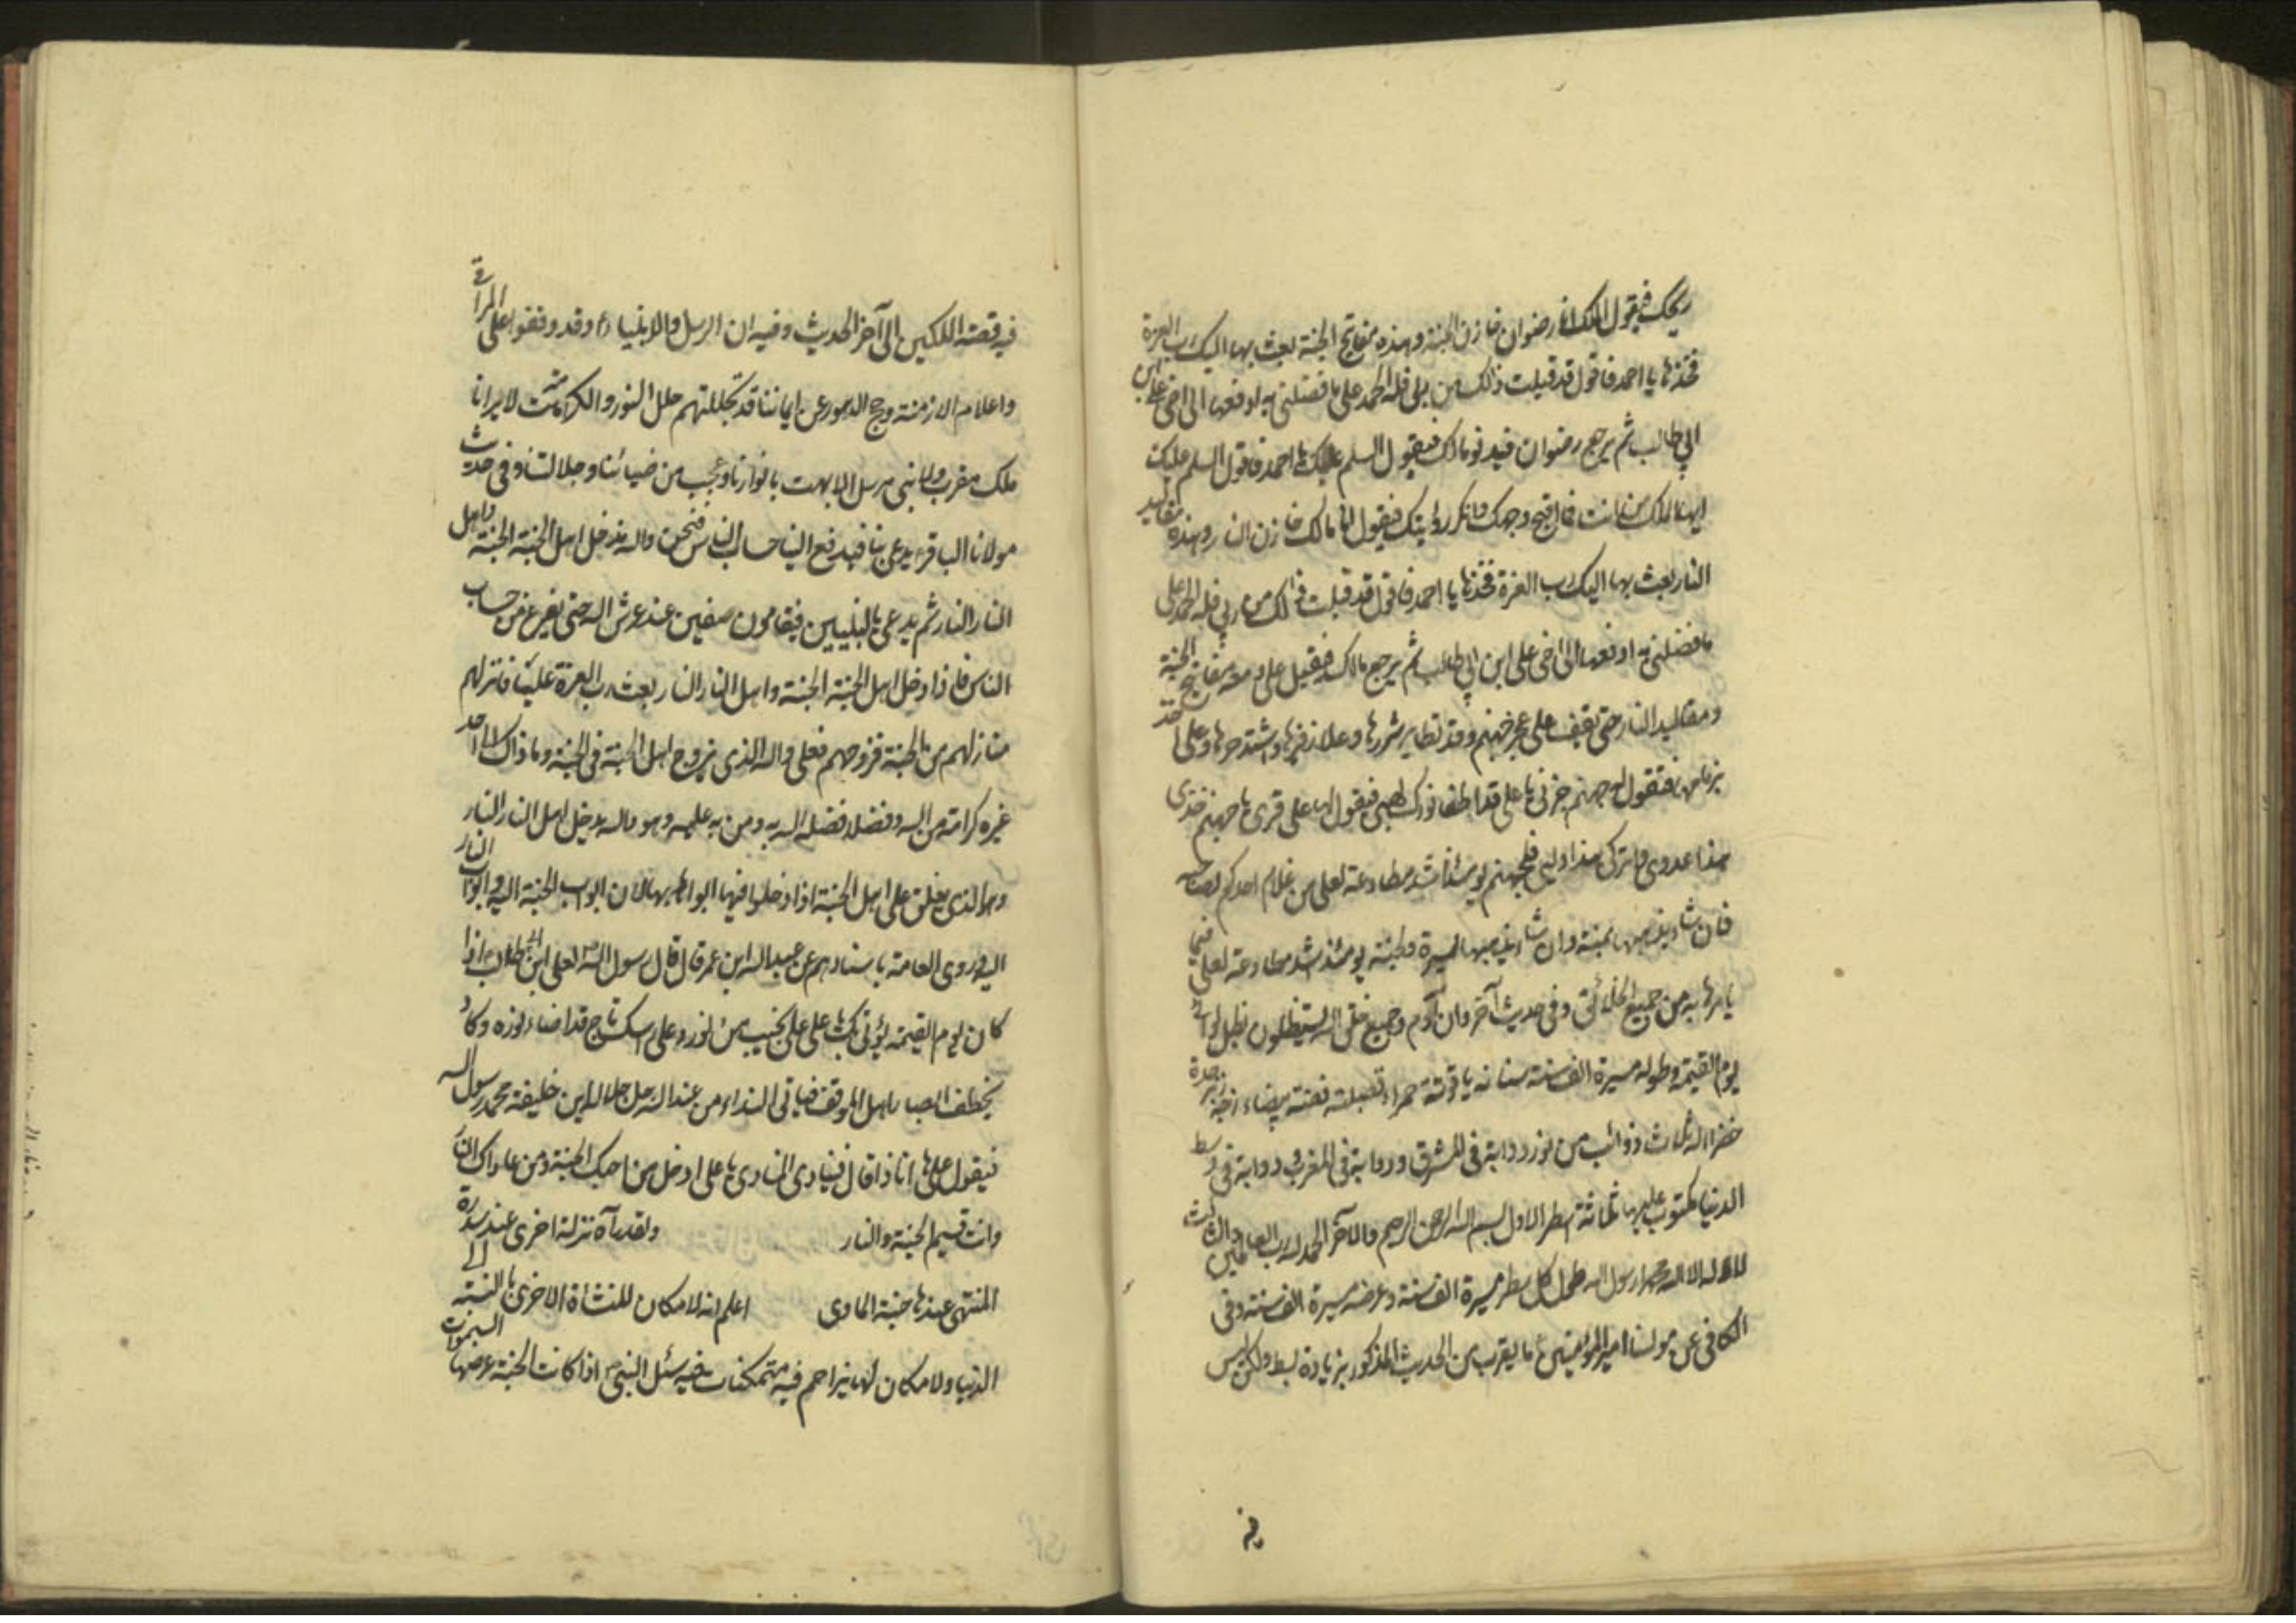 ريحك فيقول الملك انا رضوان خازن الجنة وهذه مفاتيح الجنة بعث بها اليك رب العزة
فخذها يا احمد فاقول قد قبلت ذلك من ربي فله الحمد على ما فضلني به ادفعها الى اخي علي بن
ابي طالب ثم يرجع رضوان فيدنو مالك فيقول السلم عليك يا احمد فاقول السلم عليك
ايها الملك من انت فما اقبح وجهك وانكر رؤيتك فيقول انا مالك خازن النار وهذه مقاليد
النار بعث بها اليك رب العزة فخذها يا احمد فاقول قد قبلت ذلك من ربي فله الحمد على
ما فضلني به ادفعها الى اخي على ابن ابي طالب ثم يرجع مالك فيقبل على ومعه مفاتيح الجنة
ومقاليد النار حتى يقف على عجز جهنم وقد تطاير شررها وعلا زفيرها واشتد حرها وعلى اخذ
بزمامها فتقول له جهنم جزني يا على قد اطفا نورك لهبي فيقول لها على قري يا جهنم خذي
هذا عدوي واتركي هذا وليي فلجهنم يومئذ اشد مطاوعة لعلى من غلام احدكم لصاحبه
فان شاء يذهبها يمنة وان شاء يذهبها يسرة والجنة يومئذ اشد مطاوعة لعلي فيما
يامرها به من جميع الخلائق وفي حديث آخر وان آدم وجميع خلق الله يستظلون بظل لوائي
يوم القيمة وطوله مسيرة الف سنة سنانه ياقوتة حمراء قصبته فضة بيضاء زجه زبرجدة
خضراء له ثلاث ذوائب من نور ذوابة في المشرق وذوابة في المغرب وذوابة في وسط
الدنيا مكتوب عليها ثلاثة اسطر الاول بسم الله الرحمن الرحيم والآخر الحمد لله رب العالمين والثالث
لا اله الا الله محمد رسول الله طول كل سطر مسيرة الف سنة وعرضه مسيرة الف سنة وفي
الكافي عن مولينا امير المؤمنين ع ما يقرب من الحديث المذكور بزيادة بسط ولكن ليس
فيه قصة الملكين الى آخر الحديث وفيه ان الرسل والانبياء ع وقد وقفوا على المراقي
واعلام الازمنة وحجج الدهور عن ايماننا قد تجللتهم حلل النور والكرامة لا يرانا
ملك مقرب ولا نبي مرسل الا بهت بانوارنا وعجب من ضيائنا وجلالتنا وفي حديث
مولانا الباقر ع يدعى بنا فيدفع الينا حساب الناس فنحن والله ندخل اهل الجنة الجنة واهل
النار النار ثم يدعى بالنبيين فيقامون صفين عند عرش الله حتى نفرغ من حساب
الناس فاذا دخل اهل الجنة الجنة واهل النار النار بعث رب العزة عليا فانزلهم
منازلهم من الجنة فزوجهم فعلى والله الذي يزوج اهل الجنة في الجنة وما ذاك الى احد
غيره كرامة من الله وفضلا فضله الله به ومن به عليه وهو والله يدخل اهل النار النار
وهو الذي يغلق على اهل الجنة اذا دخلوا فيها ابوابها لان ابواب الجنة اليه وابواب النار
اليه وروى العامة باسنادهم عن عبد الله ابن عمر قال قال رسول الله لعلى ابن ابي طالب اذا
كان يوم القيمة يؤتى بك يا على على نجيب من نور وعلى راسك تاج قد اضاء نوره وكاد
يخطف ابصار اهل الموقف فياتي النداء من عند الله جل جلاله اين خليفة محمد رسول الله
فيقول على ها انا ذا قال فينادي المنادي يا على ادخل من احبك الجنة ومن عاداك النار
وانت قسيم الجنة والنار ولقد رآه نزلة اخرى عند سدرة
المنتهى عندها جنة الماوى اعلم انه لا مكان للنشاة الاخرى بالنسبة الى
الدنيا ولا مكان لها يزاحم فيه متمكنات فيه سئل النبي ص اذا كانت الجنة عرضها السموات